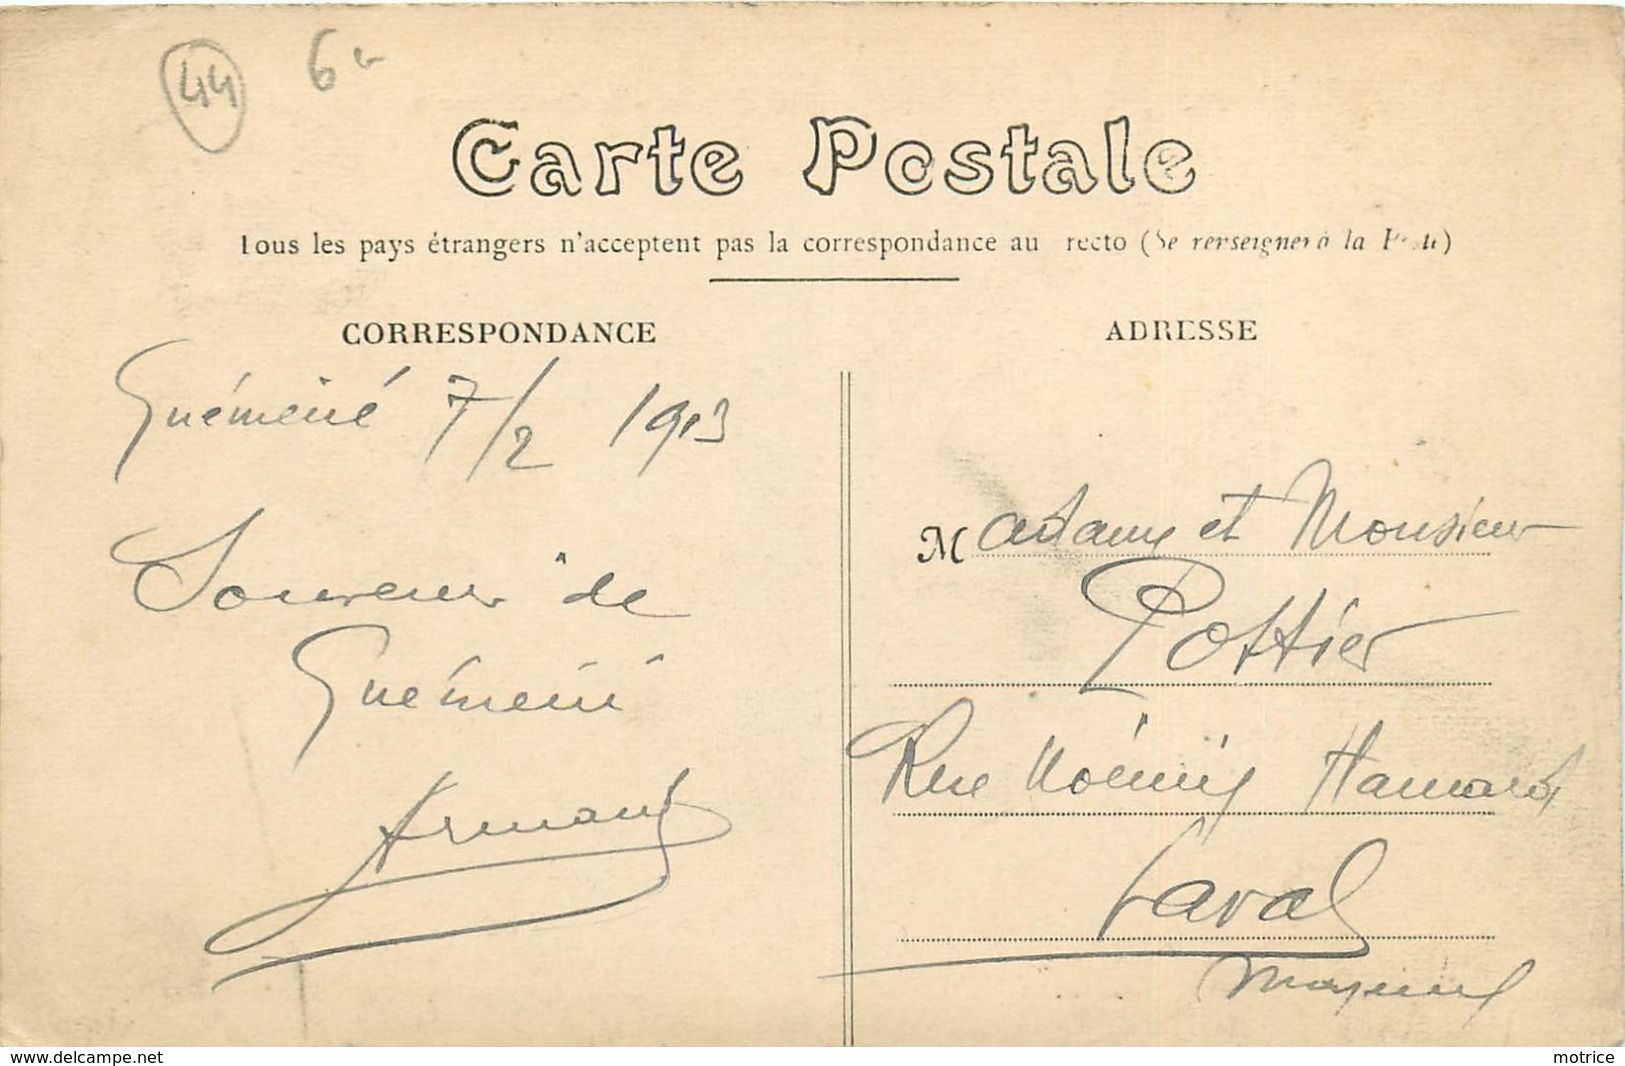 44 6
Carte Postale
Tous les pays étrangers n'acceptent pas la correspondance au recto (Se renseigner à la Poste)
CORRESPONDANCE
Guémené 7/2 1913
Souvenir de
Guémené
Armand
ADRESSE
Madame et Monsieur
Pottier
Rue Noémie Hamard
Laval
Mayenne
www.delcampe.net
motrice